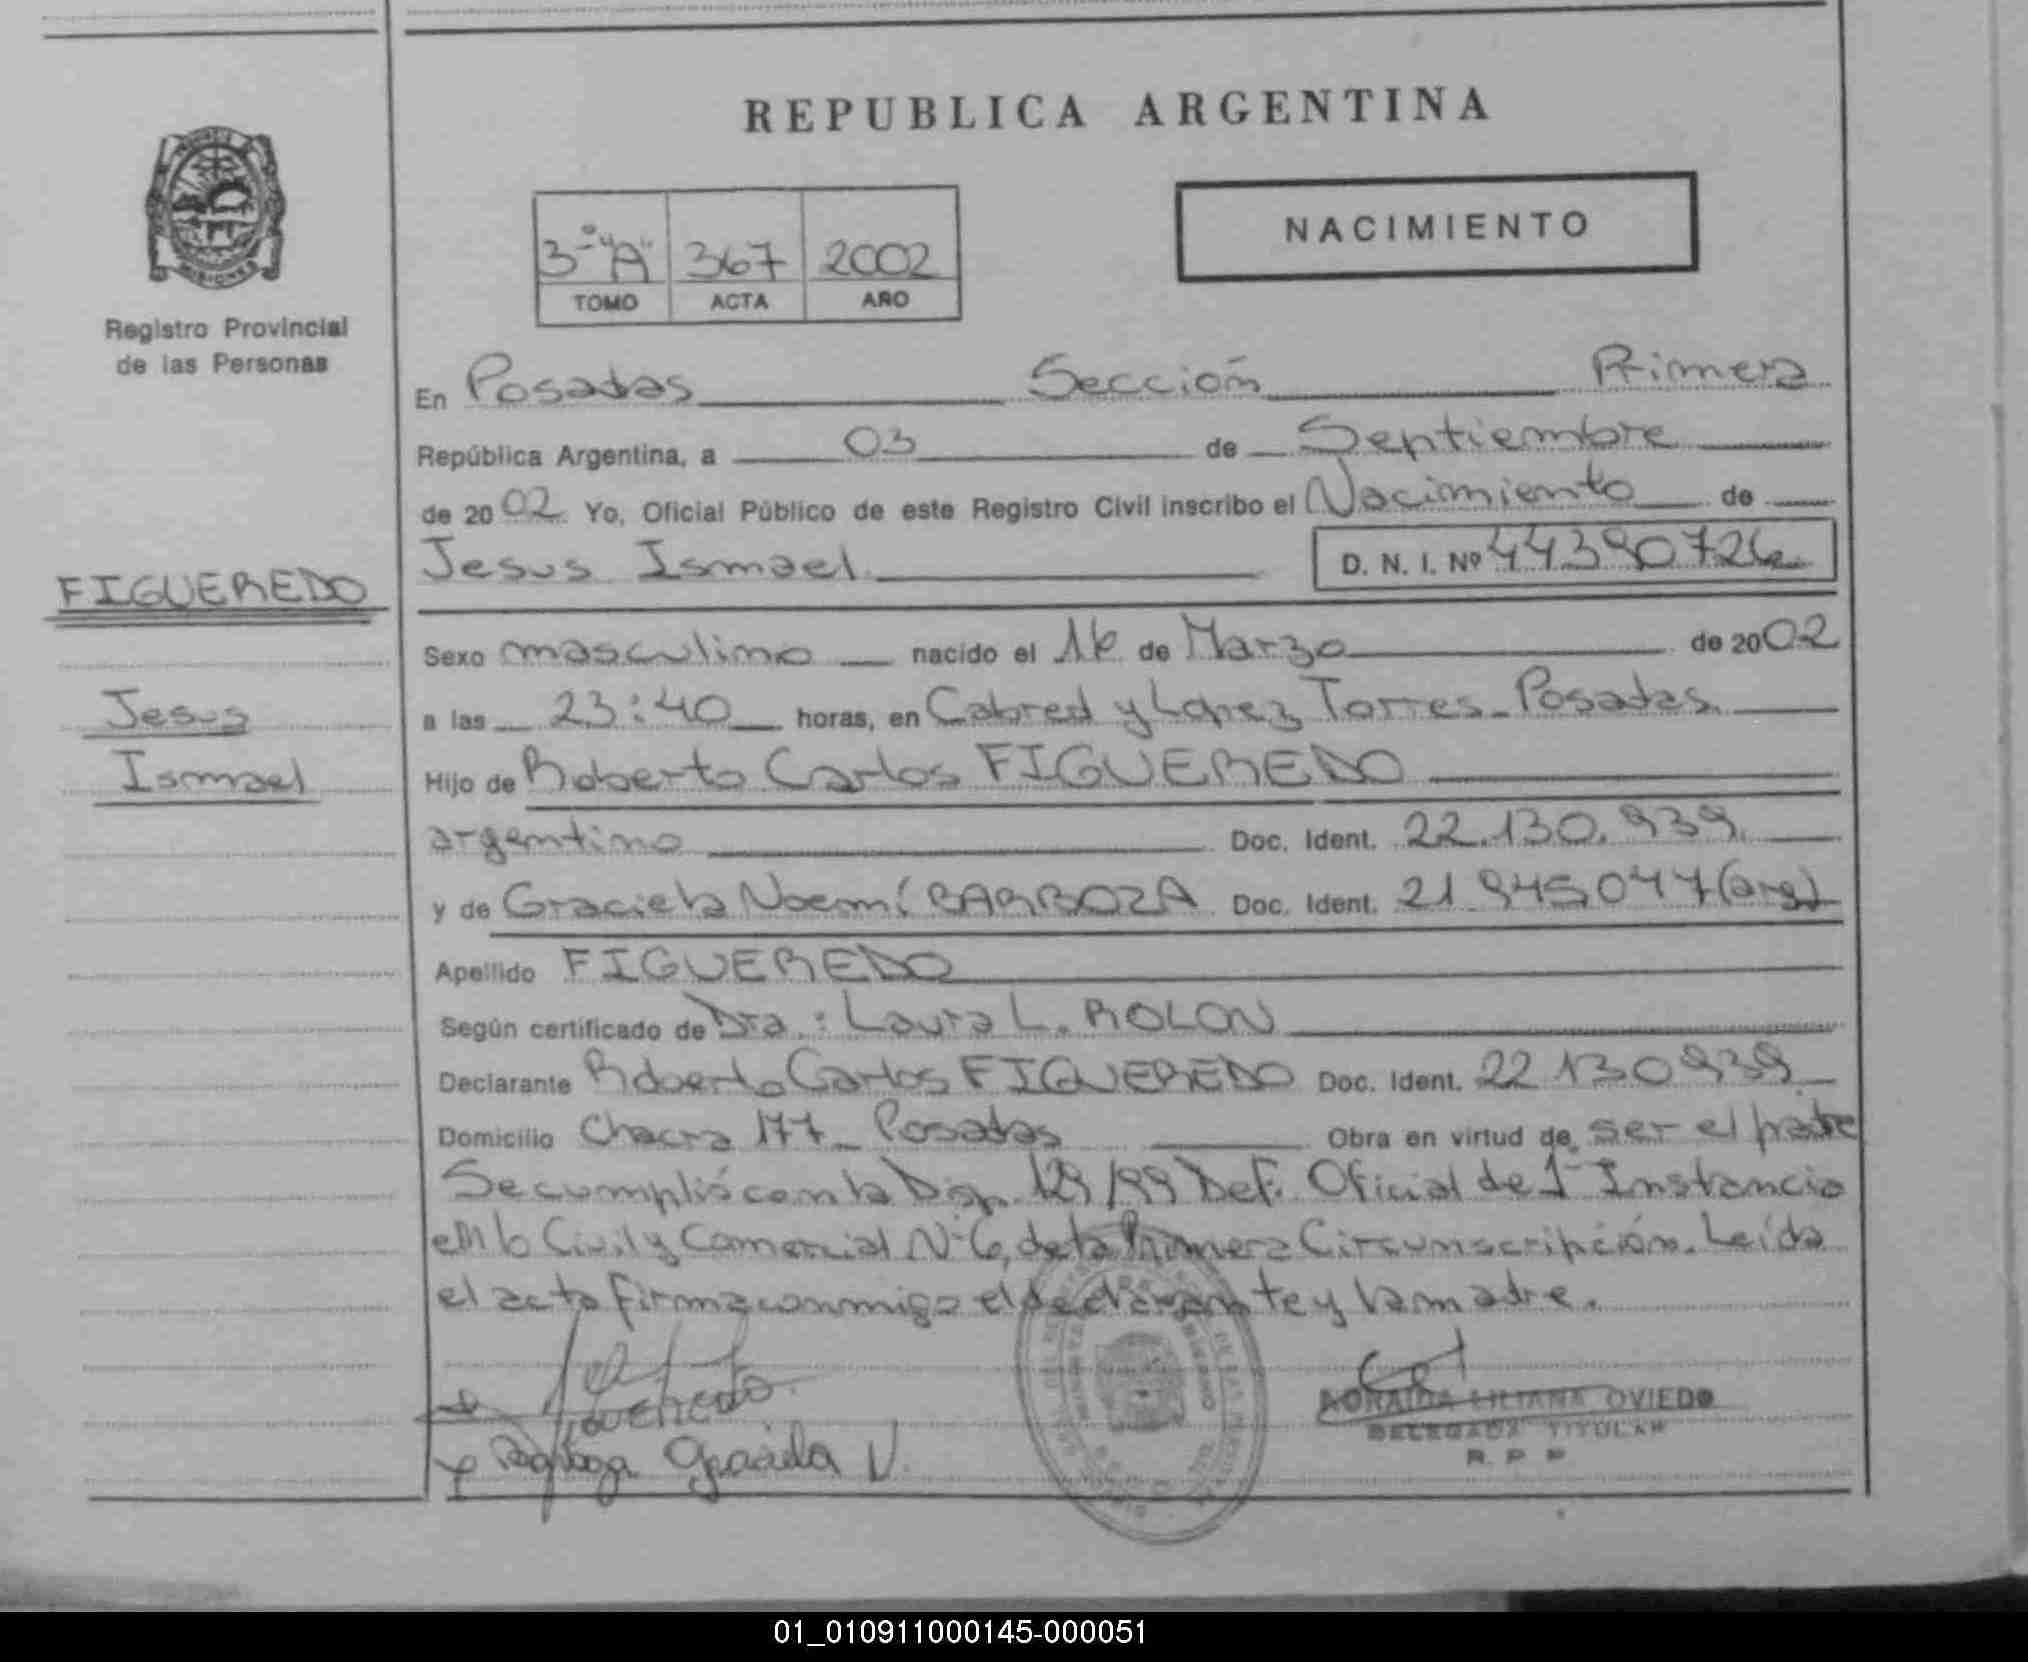 REPUBLICA ARGENTINA
MISIONES
Registro Provincial
de las Personas
3º "A" 367 2002
TOMO ACTA AÑO
NACIMIENTO
En Posadas Sección Primera
República Argentina, a 03 de Septiembre
de 2002 Yo, Oficial Público de este Registro Civil inscribo el Nacimiento de
Jesus Ismael D. N. I. Nº 44390726
FIGUEREDO
Jesus
Ismael
Sexo masculino nacido el 16 de Marzo de 2002
a las 23:40 horas, en Cabred y Lopez Torres - Posadas.
Hijo de Roberto Carlos FIGUEREDO
argentino Doc. Ident. 22.130.939.
y de Graciela Noemí BARBOZA Doc. Ident. 21.945047 (arg)
Apellido FIGUEREDO
Según certificado de Dra: Laura L. ROLON
Declarante Roberto Carlos FIGUEREDO Doc. Ident. 22130939
Domicilio Chacra 177 - Posadas Obra en virtud de ser el padre
Se cumplió con la Disp. 129/99 Def. Oficial de 1ª Instancia
en lo Civil y Comercial Nº 6, de la Primera Circunscripción. Leída
el acta firma conmigo el declarante y la madre.
Graciela N.
LILIANA OVIEDO
DELEGADA TITULAR
R. P. P
01_010911000145-000051